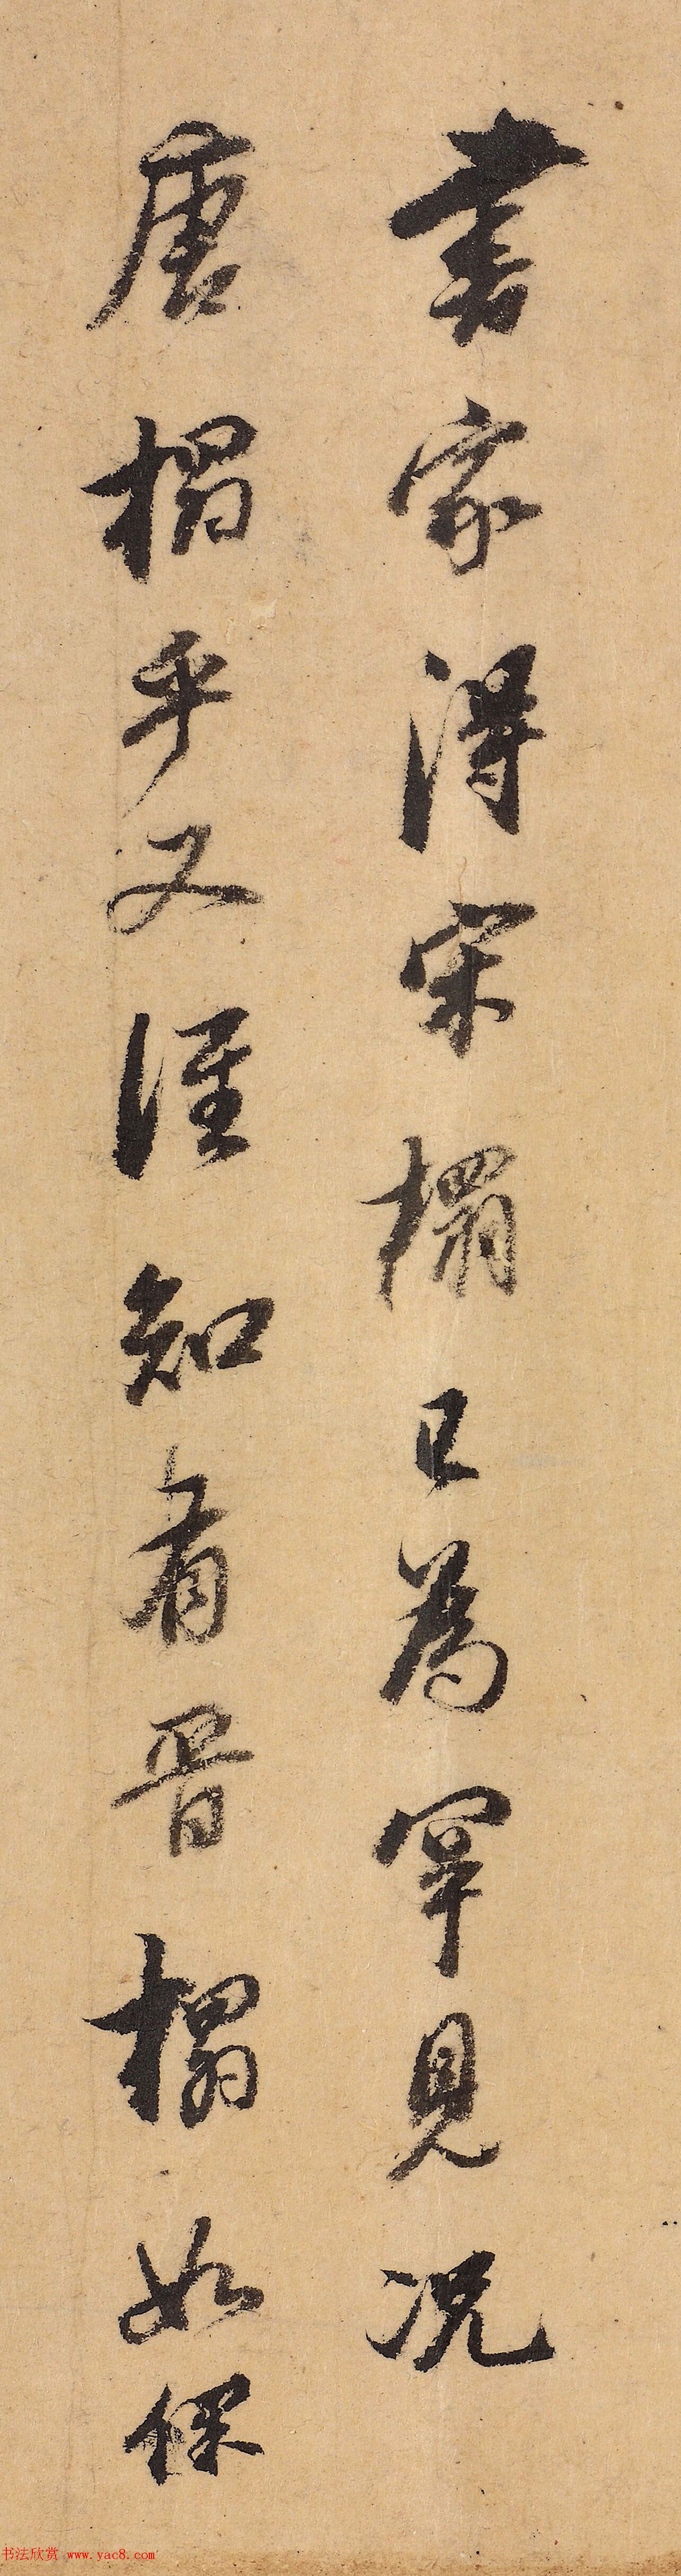 書家得宋榻已為罕見況
唐榻乎又誰知有晉榻如保
书法欣赏 www.yac8.com